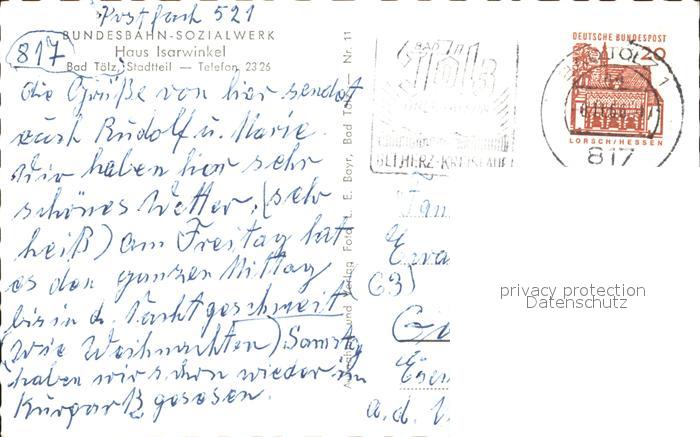 Postfach 521
BUNDESBAHN-SOZIALWERK
817
Haus Isarwinkel
Bad Tölz, Stadtteil — Telefon 2326
die Grüße von hier sendet
euch Rudolf u. Marie.
Wir haben hier sehr
schönes Wetter, (sehr
heiß) am Freitag hat
es den ganzen Mittag
bis in d. Nacht geschneit
wie Weihnachten) Samstag
haben wir schon wieder im
Kurpark gesessen.
Verlag Foto E. Bayr, Bad Tölz Nr. 11
BAD
Tölz
BEI HERZ-KREISLAUF
DEUTSCHE BUNDESPOST
20
LORSCH/HESSEN
BAD TÖLZ 1
817
Fam
(63)
a.d.
privacy protection
Datenschutz